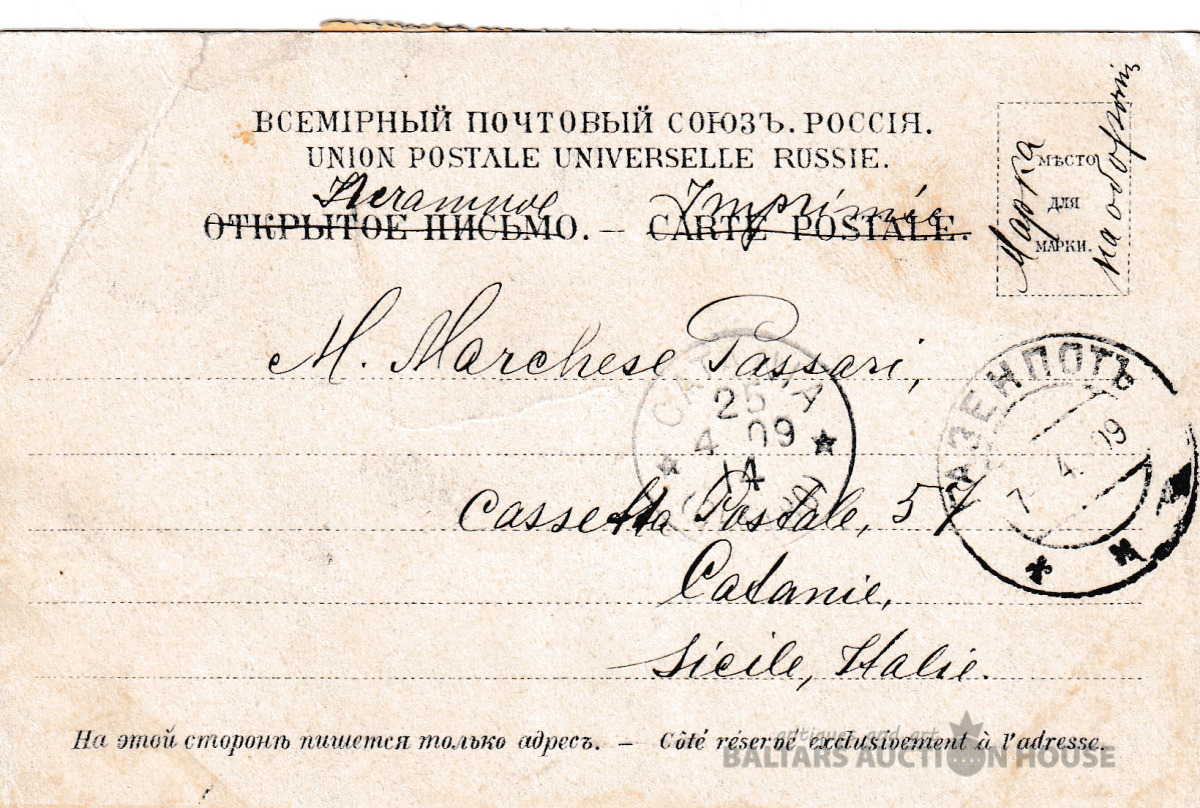 ВСЕМІРНЫЙ ПОЧТОВЫЙ СОЮЗЪ. РОССІЯ.
UNION POSTALE UNIVERSELLE RUSSIE.
Imprimée
ОТКРЫТОЕ ПИСЬМО. — CARTE POSTALE.
МѢСТО
ДЛЯ
МАРКИ.
Марка
на оборотѣ
M. Marchese Passari,
25
4 09
14
АЗЕНПОТЪ
7 4 09
Cassetta Postale, 57
Catanie,
Sicile, Italie.
На этой сторонѣ пишется только адресъ. — Côté réservé exclusivement à l'adresse.
antiques and art
BALTARS AUCTION HOUSE